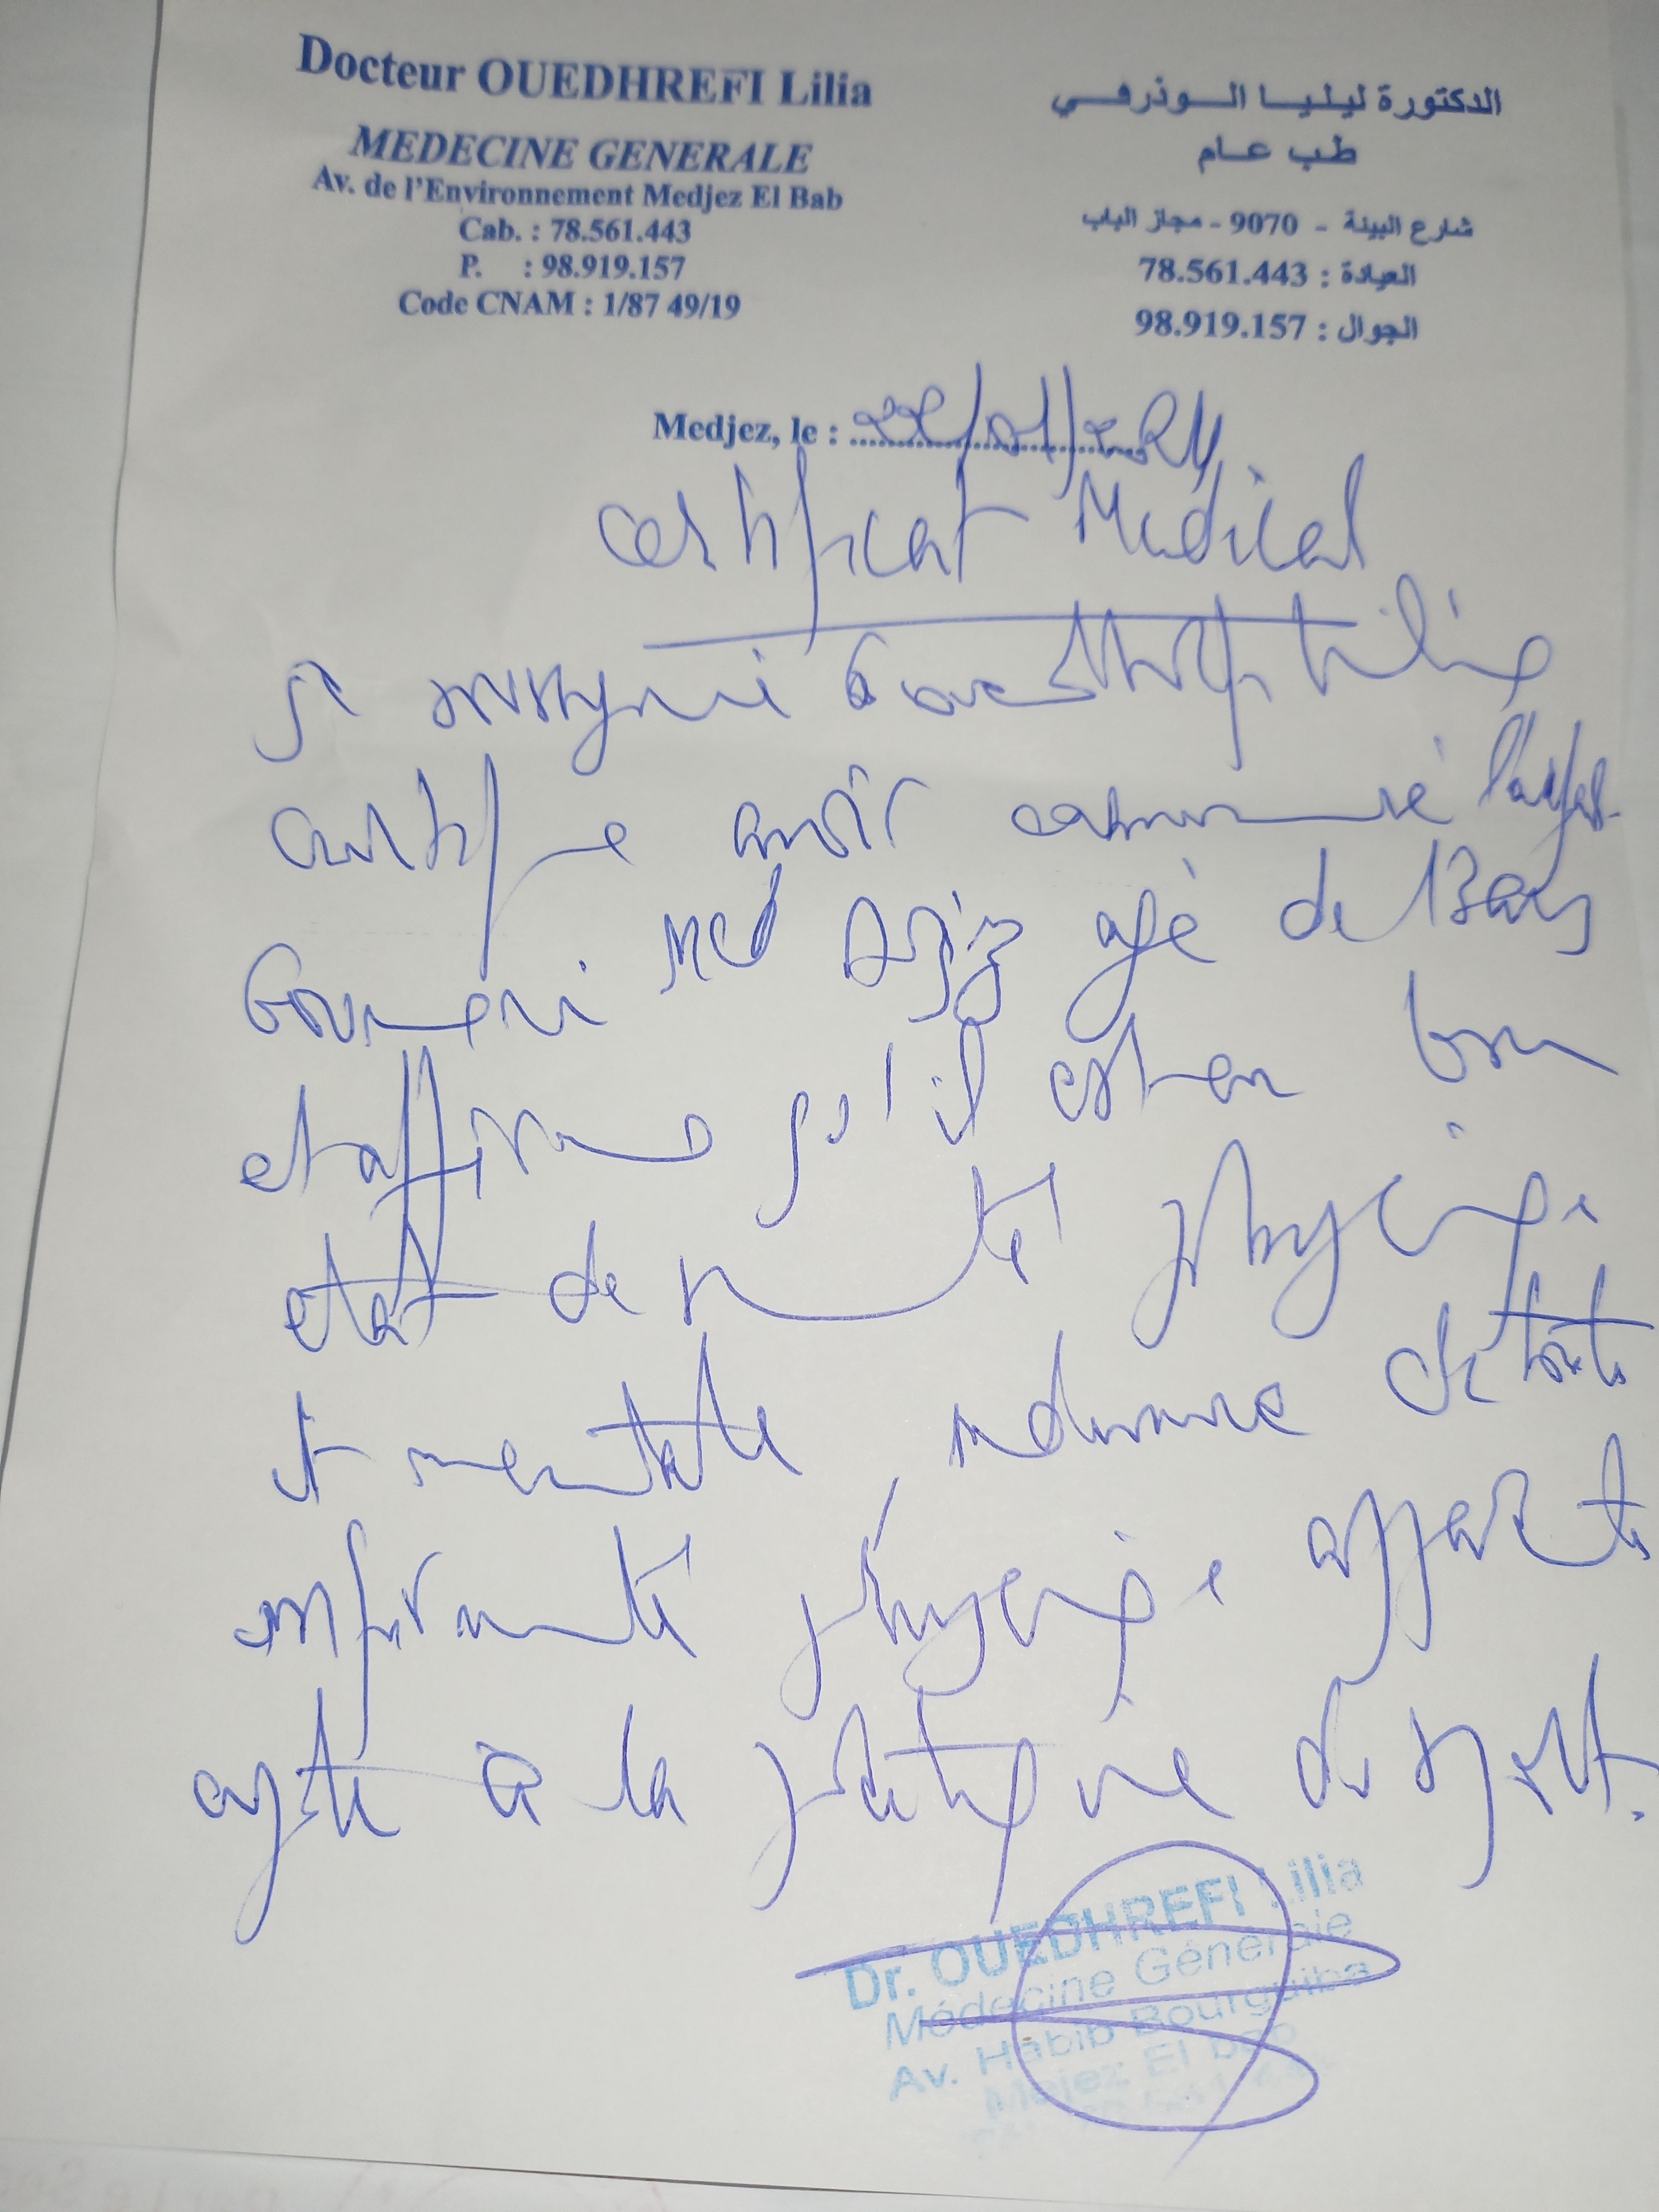 Docteur OUEDHREFI Lilia
MEDECINE GENERALE
Av. de l'Environnement Medjez El Bab
Cab. : 78.561.443
P. : 98.919.157
Code CNAM : 1/87 49/19
الدكتورة ليليا الوذرفي
طب عام
شارع البيئة - 9070 - مجاز الباب
العيادة : 78.561.443
الجوال : 98.919.157
Medjez, le :
Certificat Medical
Je soussigné Lilia
certifie avoir examiné
Med Aziz agé de 13 ans
et affirme qu'il est en bon
etat de santé physique
et mentale indemne de toute
infirmité physique apparente
apte à la pratique du sport.
Dr. OUEDHREFI Lilia
Médecine Générale
Av. Habib Bourguiba
Mejez El bab